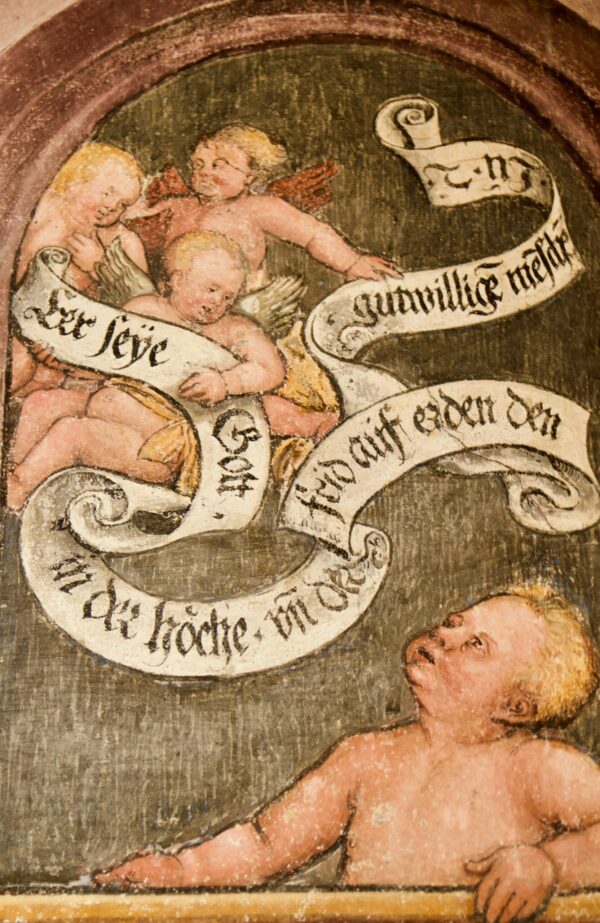 Eer seÿe
Gott
in der höche · vn̄ der
frid auf erden den
gutwilligē mēschē
LU · 2 ·